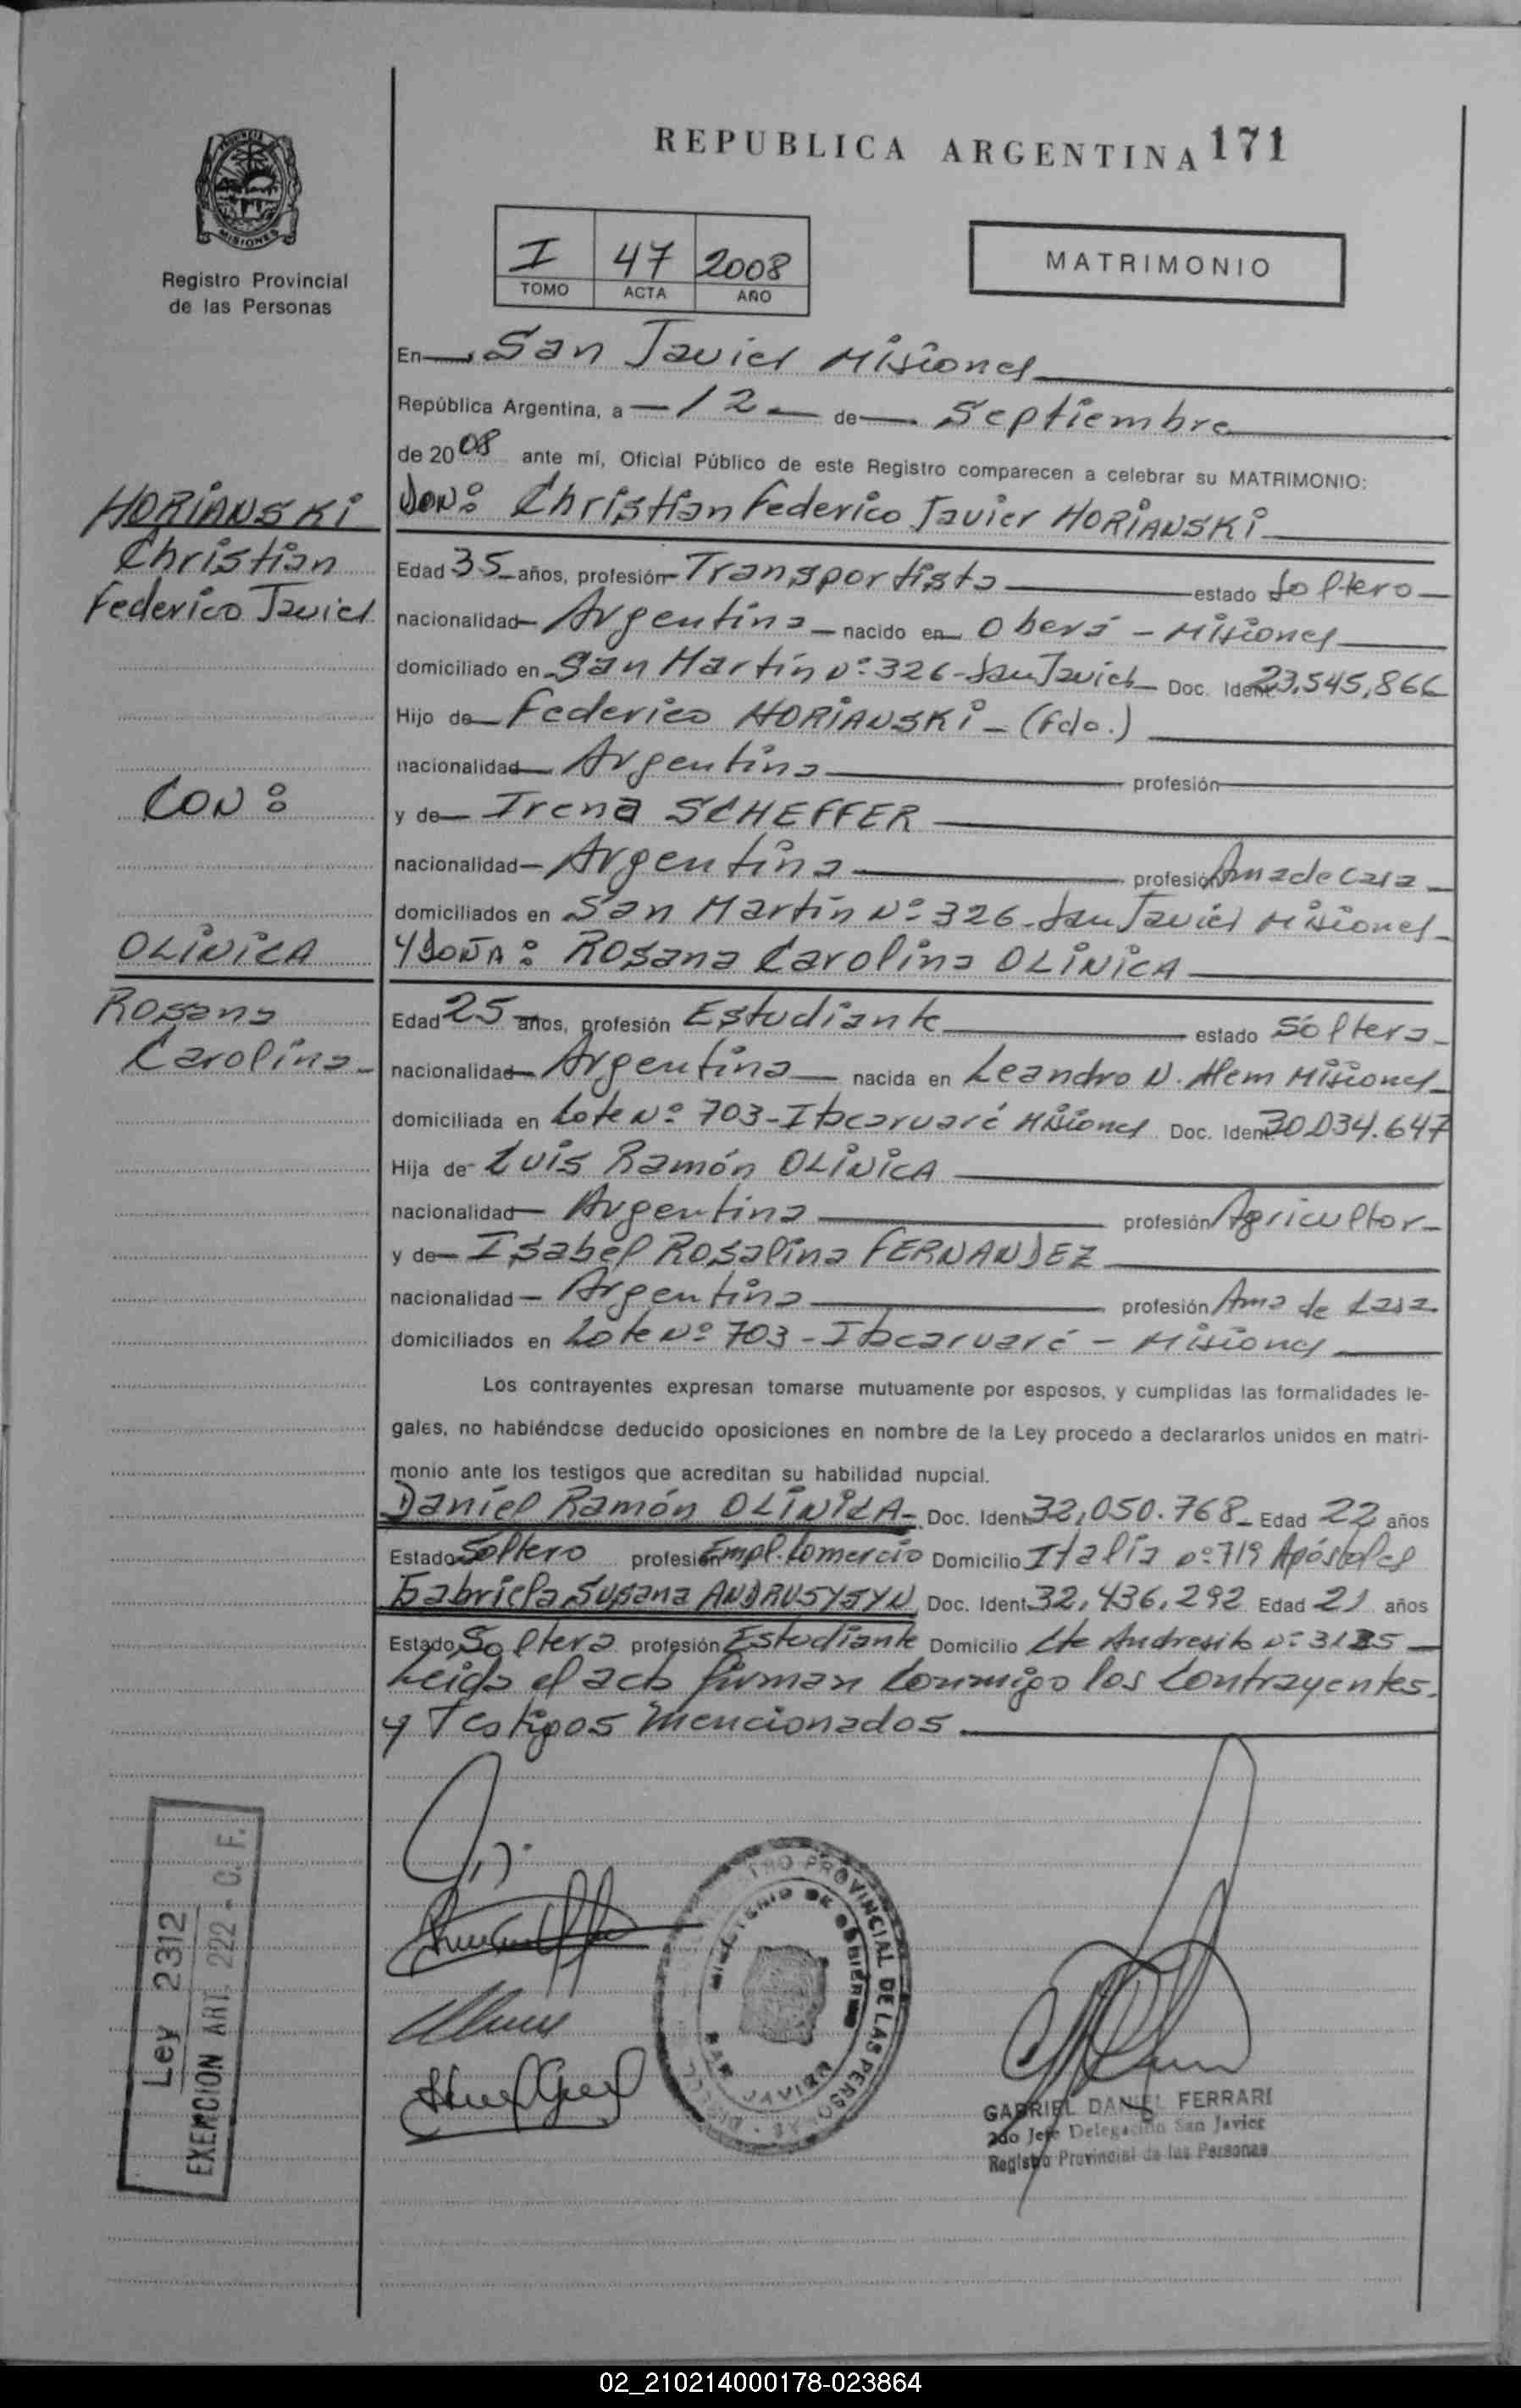 REPUBLICA ARGENTINA 171
MISIONES
Registro Provincial
de las Personas
I 47 2008
TOMO ACTA AÑO
MATRIMONIO
En San Javier Misiones
República Argentina, a 12 de Septiembre
de 2008 ante mí, Oficial Público de este Registro comparecen a celebrar su MATRIMONIO:
HORIANSKI
Christian
Federico Javier
CON:
OLINICA
Rosana
Carolina
DON: Christian Federico Javier HORIANSKI
Edad 35 años, profesión Transportista estado Soltero
nacionalidad Argentina nacido en Oberá - Misiones
domiciliado en San Martín Nº 326 - San Javier Doc. Ident. 23.545.866
Hijo de Federico HORIANSKI - (Fdo.)
nacionalidad Argentina profesión
y de Irena SCHEFFER
nacionalidad Argentina profesión Ama de Casa
domiciliados en San Martín Nº 326 - San Javier Misiones
Y DOÑA: Rosana Carolina OLINICA
Edad 25 años, profesión Estudiante estado Soltera
nacionalidad Argentina nacida en Leandro N. Alem Misiones
domiciliada en Lote Nº 703 - Itacaruaré Misiones Doc. Ident. 30.034.647
Hija de Luis Ramón OLINICA
nacionalidad Argentina profesión Agricultor
y de Isabel Rosalina FERNANDEZ
nacionalidad Argentina profesión Ama de Casa
domiciliados en Lote Nº 703 - Itacaruaré - Misiones
Los contrayentes expresan tomarse mutuamente por esposos, y cumplidas las formalidades le-
gales, no habiéndose deducido oposiciones en nombre de la Ley procedo a declararlos unidos en matri-
monio ante los testigos que acreditan su habilidad nupcial.
Daniel Ramón OLINICA - Doc. Ident. 32.050.768 Edad 22 años
Estado Soltero profesión Empl. Comercio Domicilio Italia Nº 719 Apóstoles
Gabriela Susana ANDRUSYSYN Doc. Ident. 32.436.292 Edad 21 años
Estado Soltera profesión Estudiante Domicilio Cte Andresito Nº
Leida el acta firman conmigo los Contrayentes.
y Testigos mencionados
Ley 2312
EXENCION ART. 222 - C. F.
PROVINCIAL DE LAS PERSONAS
MINISTERIO DE GOBIERNO
SAN JAVIER
GABRIEL DANIEL FERRARI
2do Jefe Delegación San Javier
Registro Provincial de las Personas
02_210214000178-023864